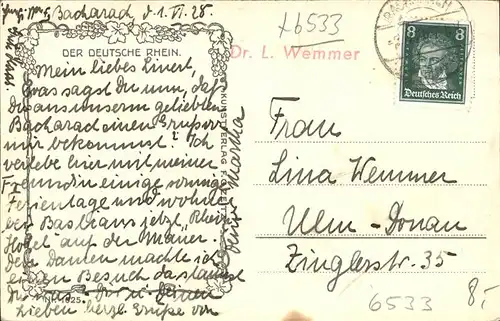 Bacharad d. 1. VI. 28.
DER DEUTSCHE RHEIN.
Mein liebes Linerl,
was sagst Du nun, daß
Du aus unserm geliebten
Bacharad einen Grußvon
mir bekommst? Ich
verlebe hier mit meiner
Freundin einige sonnige
Ferientage und wohne
bei Bastians jetzt "Rhein
Hotel" auf der Mauer.
Den Damen machte ich
einen Besuch
Lieben herzl. Grüße von
Deine Martha
KUNSTVERLAG
Nr. 1625
†6533
Dr. L. Wemmer
8 8
Deutsches Reich
Frau
Lina Wemmer
Ulm-Donau
Zinglerstr. 35
6533
8,-